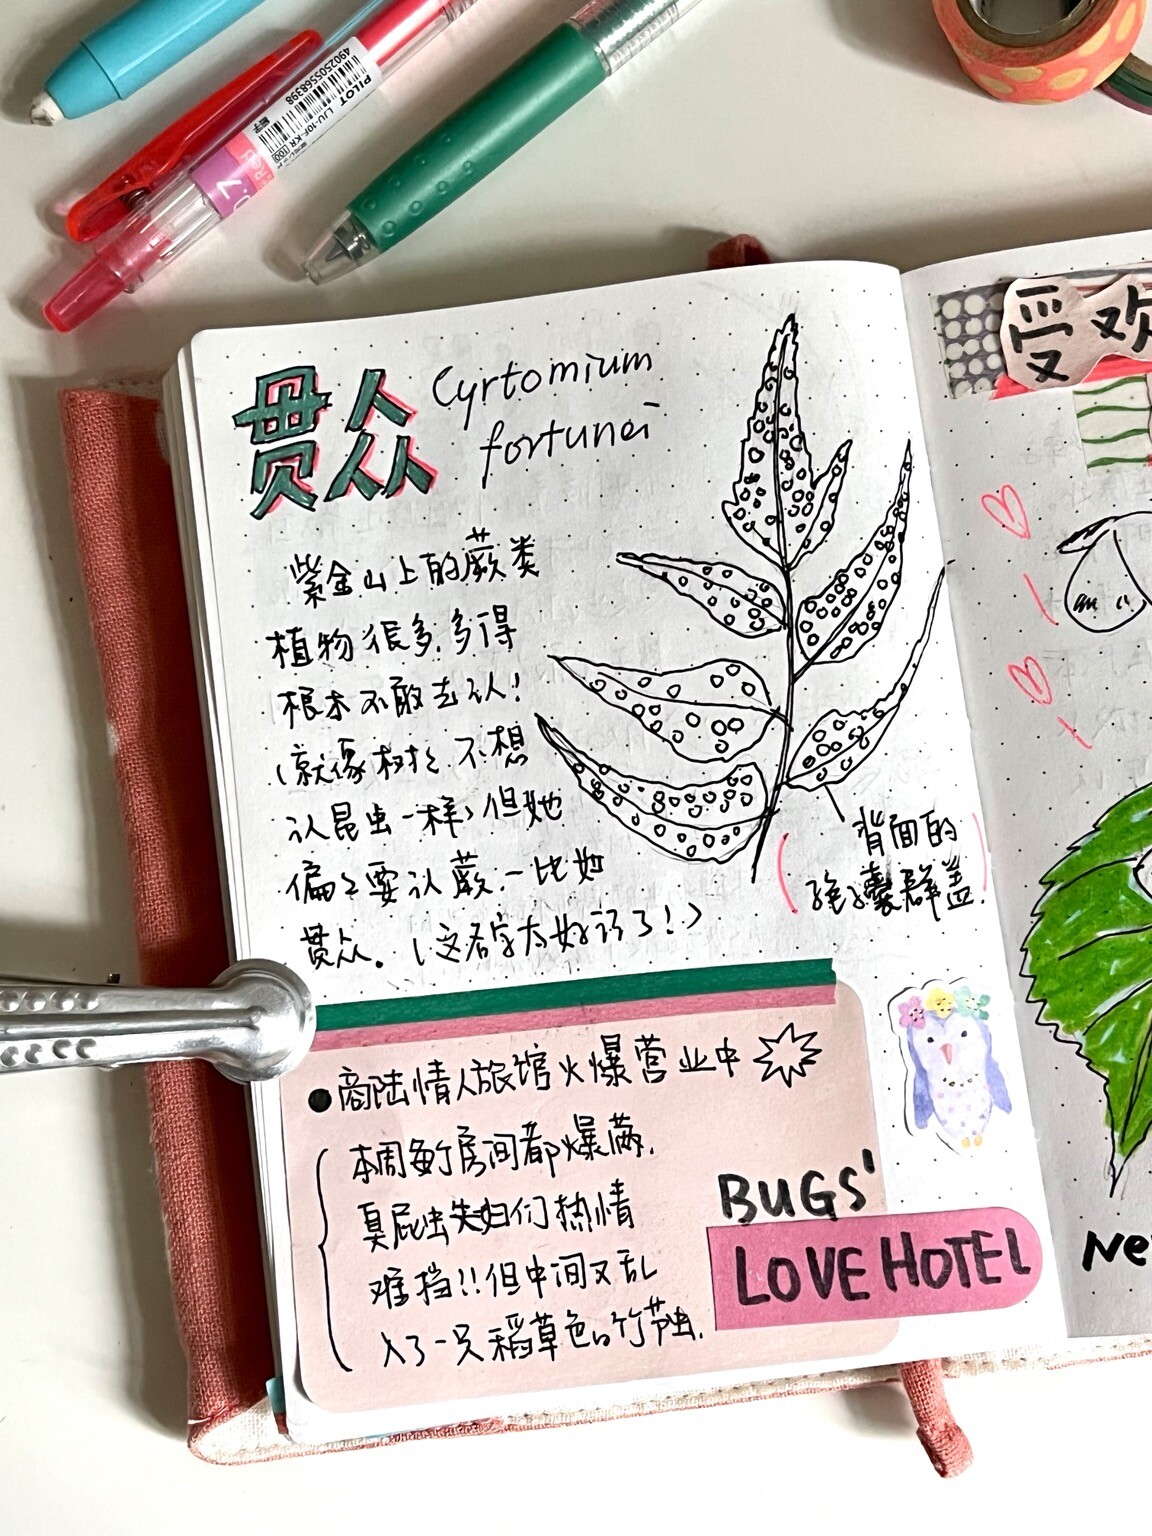 4902505568398
PILOT LJU-10F-KR
0.7
贯众 Cyrtomium
fortunei
紫金山上的蕨类
植物很多,多得
根本不敢去认!
(就像树虫不想
认昆虫一样)但她
偏偏要认蕨,一比如
贯众。(这名字太好记了!)
背面的
孢子囊群盖.
商陆情人旅馆火爆营业中
本周每个房间都爆满.
臭屁虫夫妇们热情
难挡!!但中间又乱
入了一只稻草色的竹节虫.
BUGS'
LOVE HOTEL
受欢
Ne